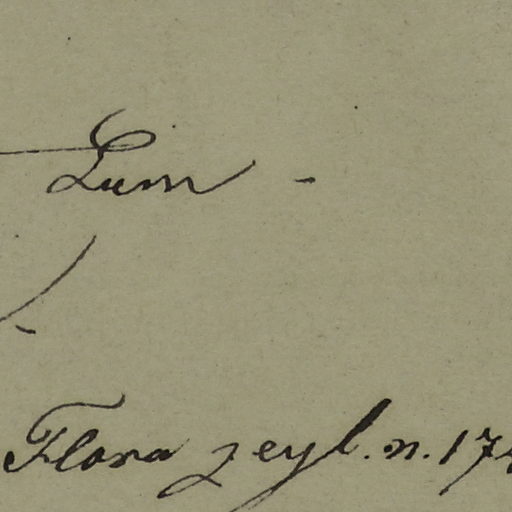 Lum -
Flora zeyl. n. 17